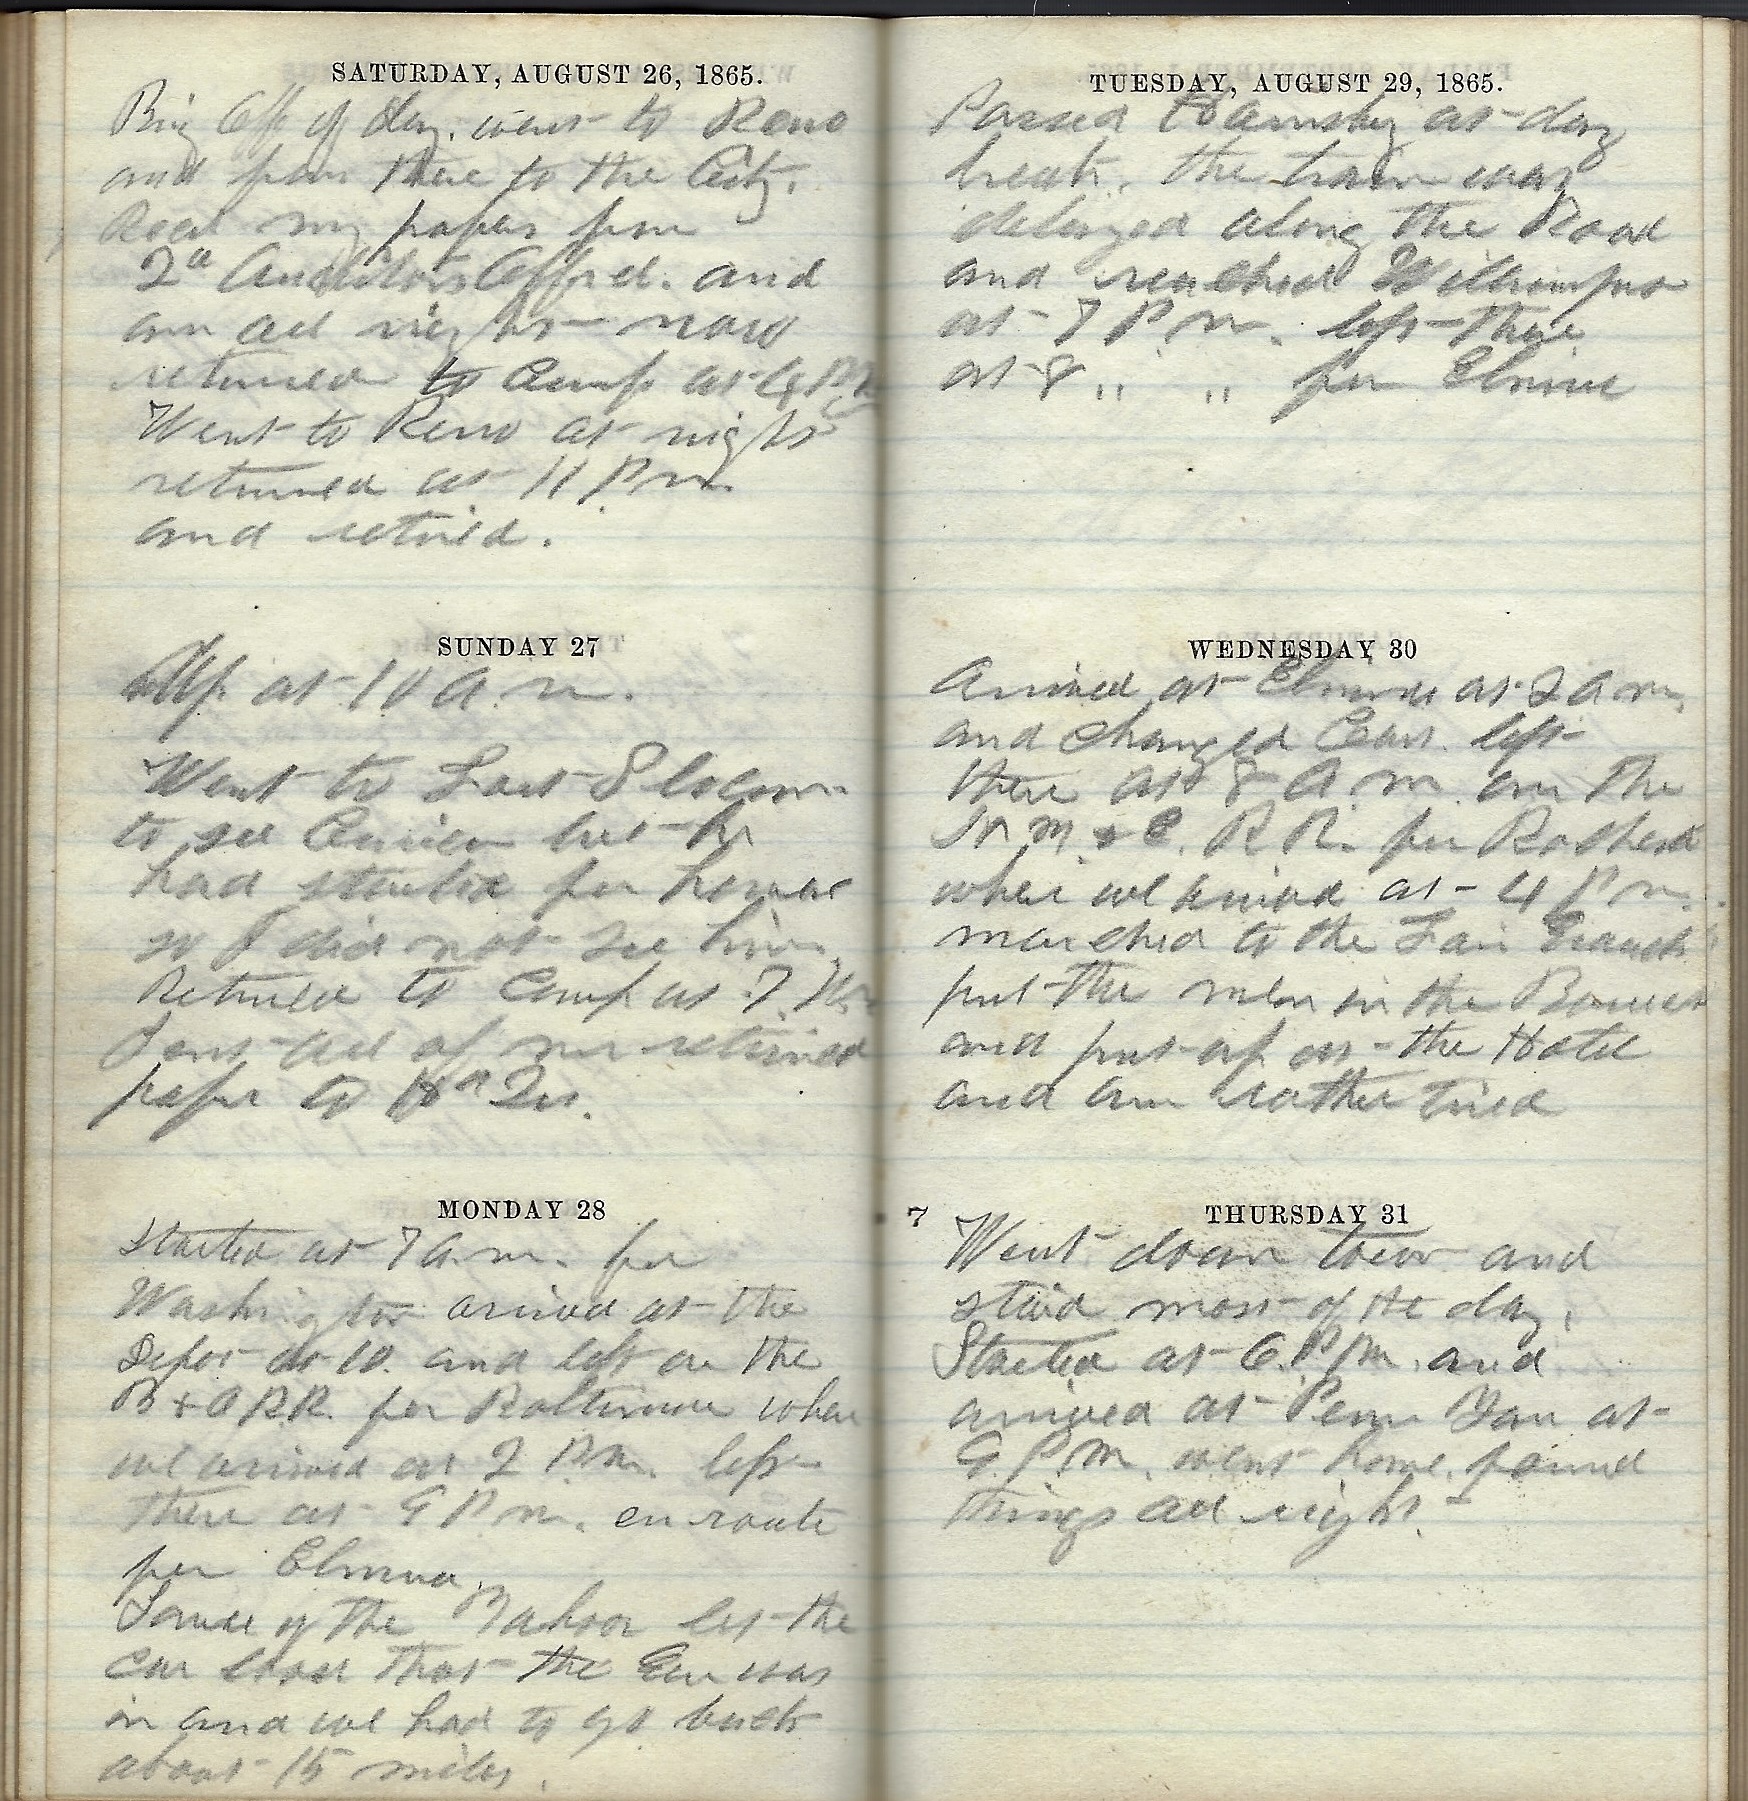 SATURDAY, AUGUST 26, 1865.
Brig Off of day. went to Reno
and from there to the City.
Recd my papers from
2d Auditors Office. and
am all right now
returned to Camp at 4 PM
Went to Reno at night
returned at 11 P m
and retired.
SUNDAY 27
Up at 10 a. m.
Went to Fort Slocum
to see but he
had started for home
so I did not see him
Returned to Camp at 7. P m
Sent all of my retained
paper to Hd Qrs.
MONDAY 28
Started at 7 a. m. for
Washington arrived at the
Depot at 10. and left on the
B & O RR. for Baltimore where
we arrived at 2 P.M. left
there at 9 P m. en route
for Elmira.
Some of the let the
car loose that the was
in and we had to go back
about 15 miles.
TUESDAY, AUGUST 29, 1865.
Passed Harrisbg at day
break. the train was
delayed along the Road
and reached Williamsport
at 7 P m. left there
at 8 " " for Elmira
WEDNESDAY 30
Arrived at Elmira at 2 a m.
and changed Cars. left
there at 8 a. m. on the
R R. for Rochester
where we arrived at 4 P m.
marched to the Fair Grounds
put the men in the Barracks
and put up at the Hotel
and am rather tired
7
THURSDAY 31
Went down town and
staid most of the day.
Started at 6. P m. and
arrived at Penn Yan at
9. P. M. went home. found
things all right.